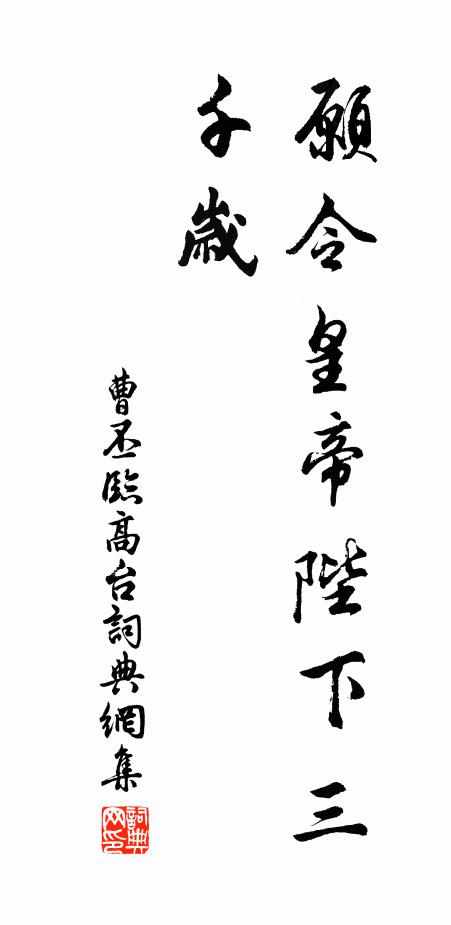 願令皇帝陛下三
千歲
曹丕臨高台詞典網集
詞典
网印